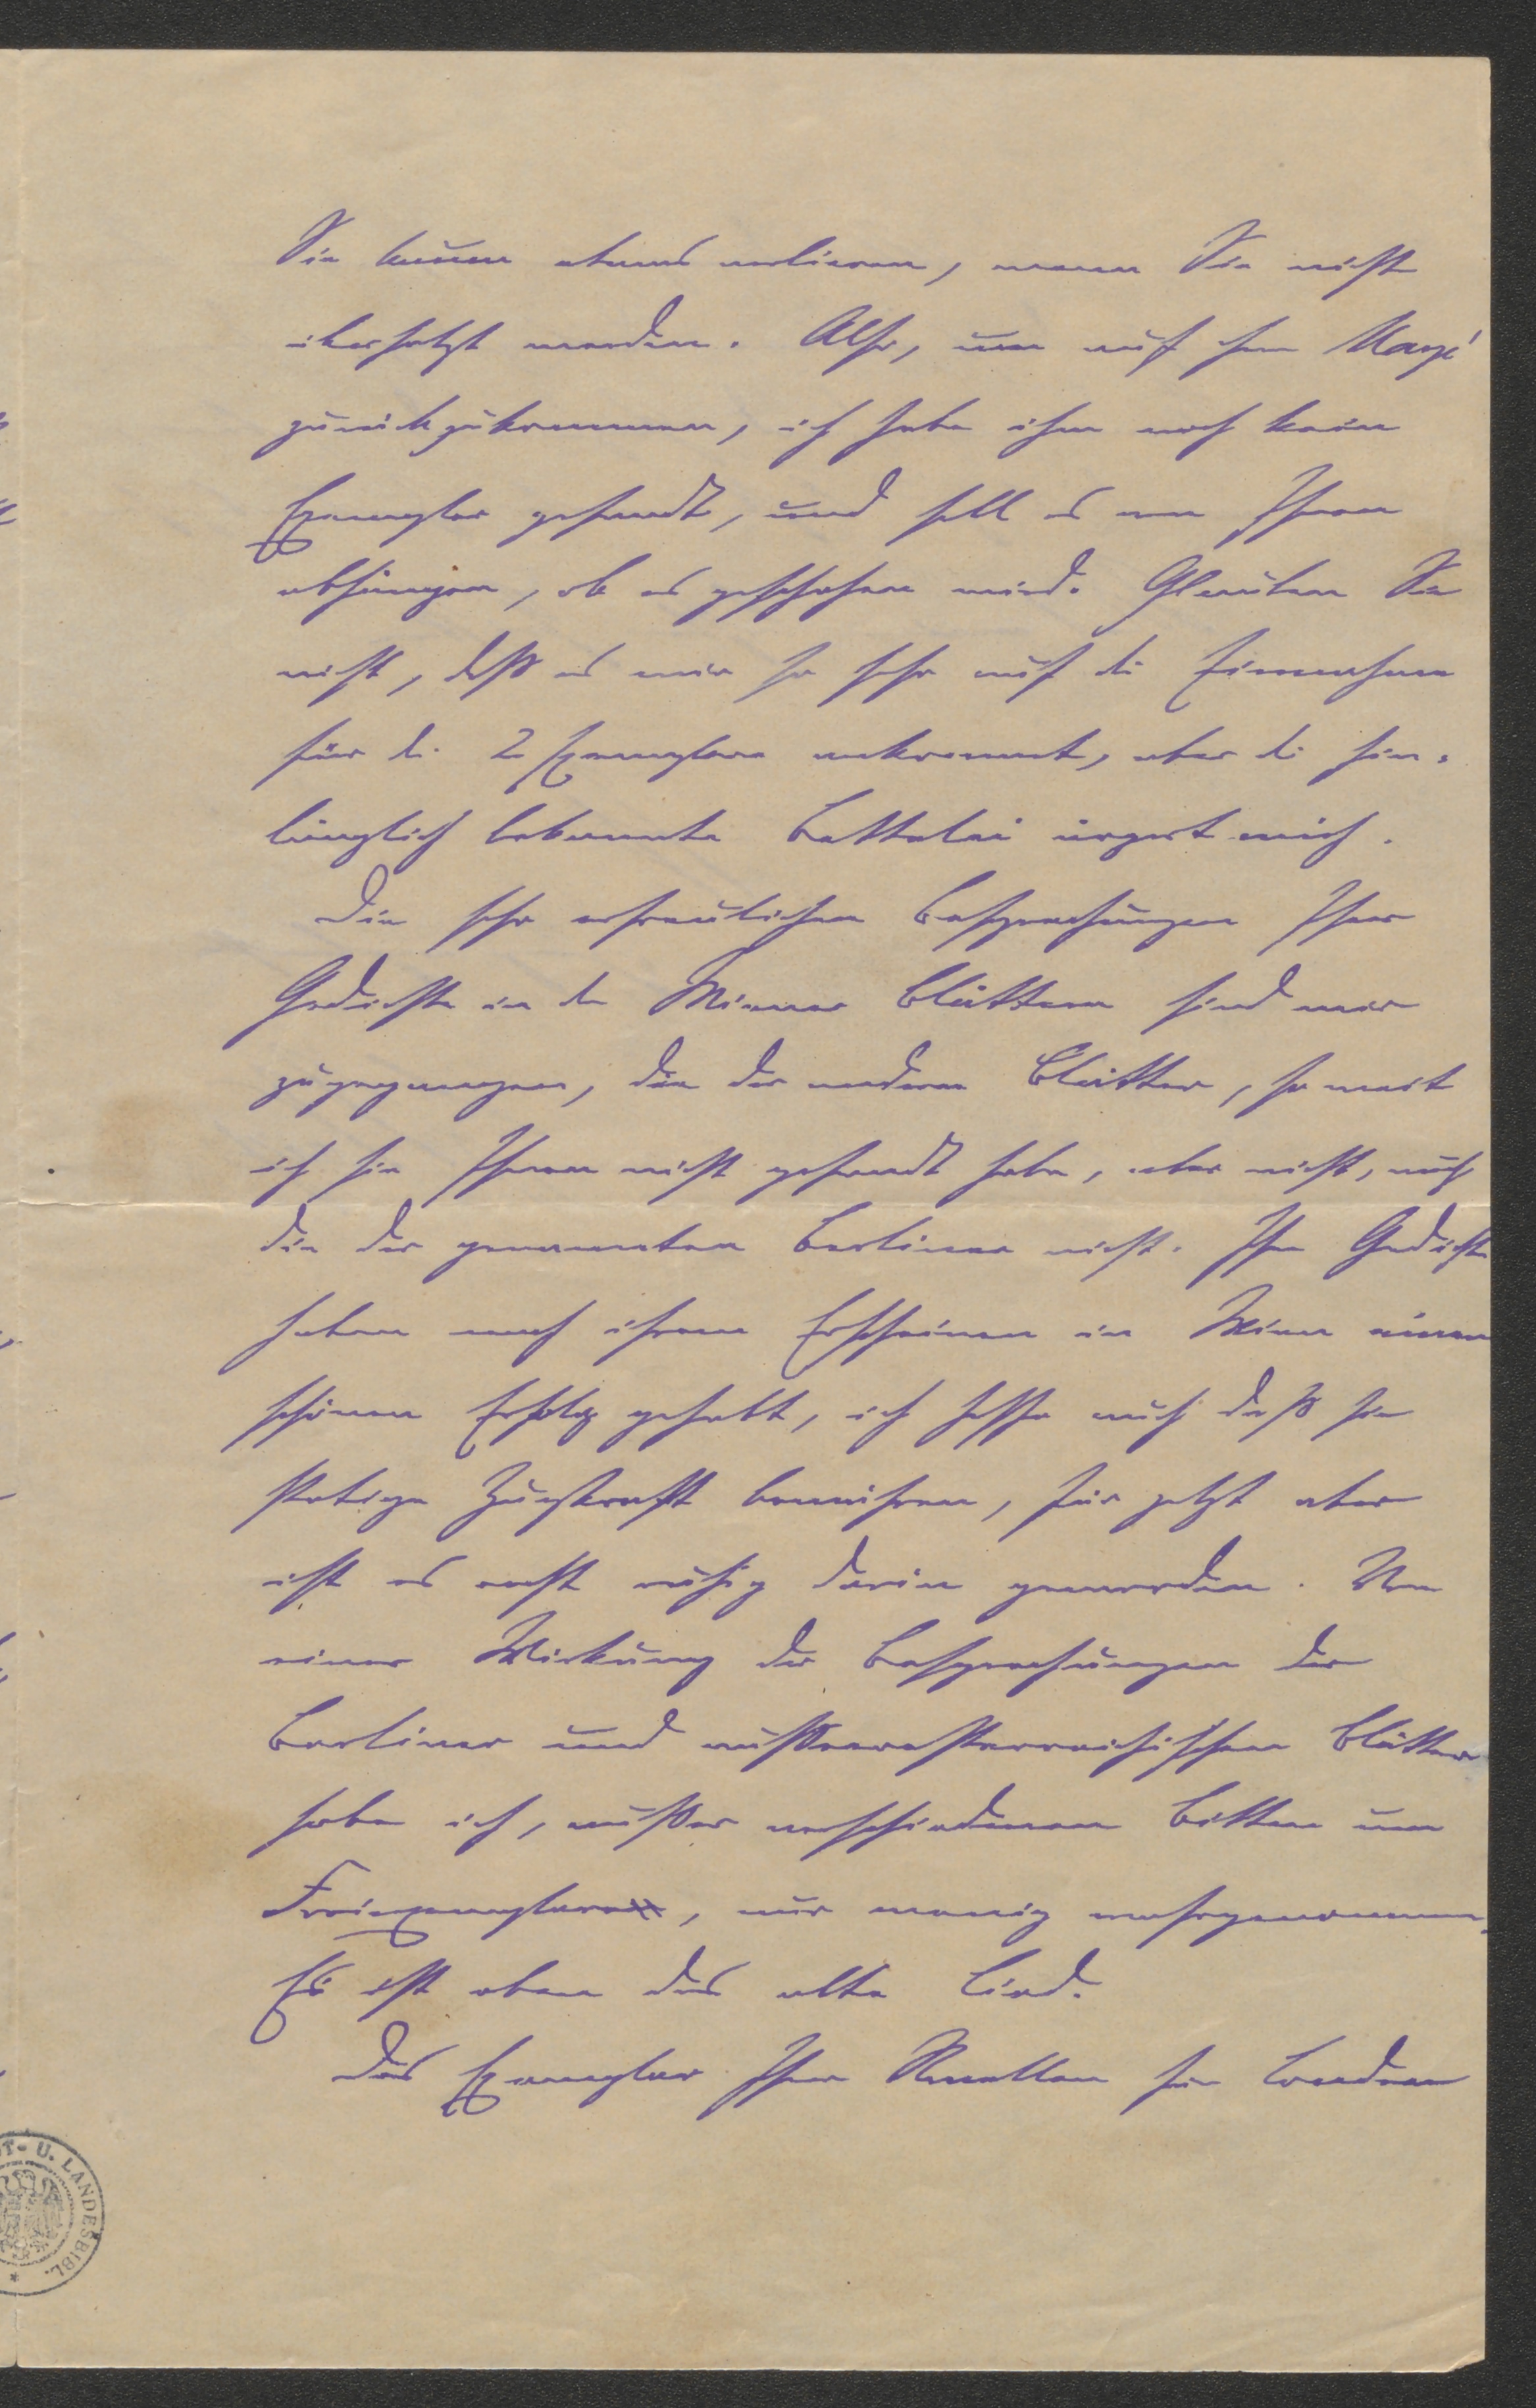 Sie kaum etwas verlieren, wenn Sie nicht
übersetzt werden. Also, um auf Herrn
zurückzukommen, ich habe ihm noch kein
Exemplar gesandt, und soll es von Ihnen
abhängen, ob es geschehen wird. Glauben Sie
nicht, daß es mir so sehr auf die Einnahme
für die 2 Exemplare ankommt, aber die hin-
länglich bekannte Bettelei ärgert mich.
Die sehr erfreulichen Besprechungen Ihrer
Gedichte in den Wiener Blättern sind mir
zugegangen, die der anderen Blätter, so weit
ich sie Ihnen nicht gesandt habe, aber nicht, auch
die der genannten Berliner nicht. Ihre Gedichte
haben nach ihrem Erscheinen in Wien einen
schönen Erfolg gehabt, ich hoffe auch daß sie
stetige Zugkraft bewahren, für jetzt aber
ist es recht ruhig darin geworden. Von
einer Wirkung der Besprechungen der
Berliner und außeroesterreichischen Blätter
habe ich, außer verschiedenen Bitten um
Freiexemplare, nur wenig wahrgenommen.
Es ist eben das alte Lied.
Das Exemplar Ihrer Novellen für London
STADT- U. LANDESBIBL.